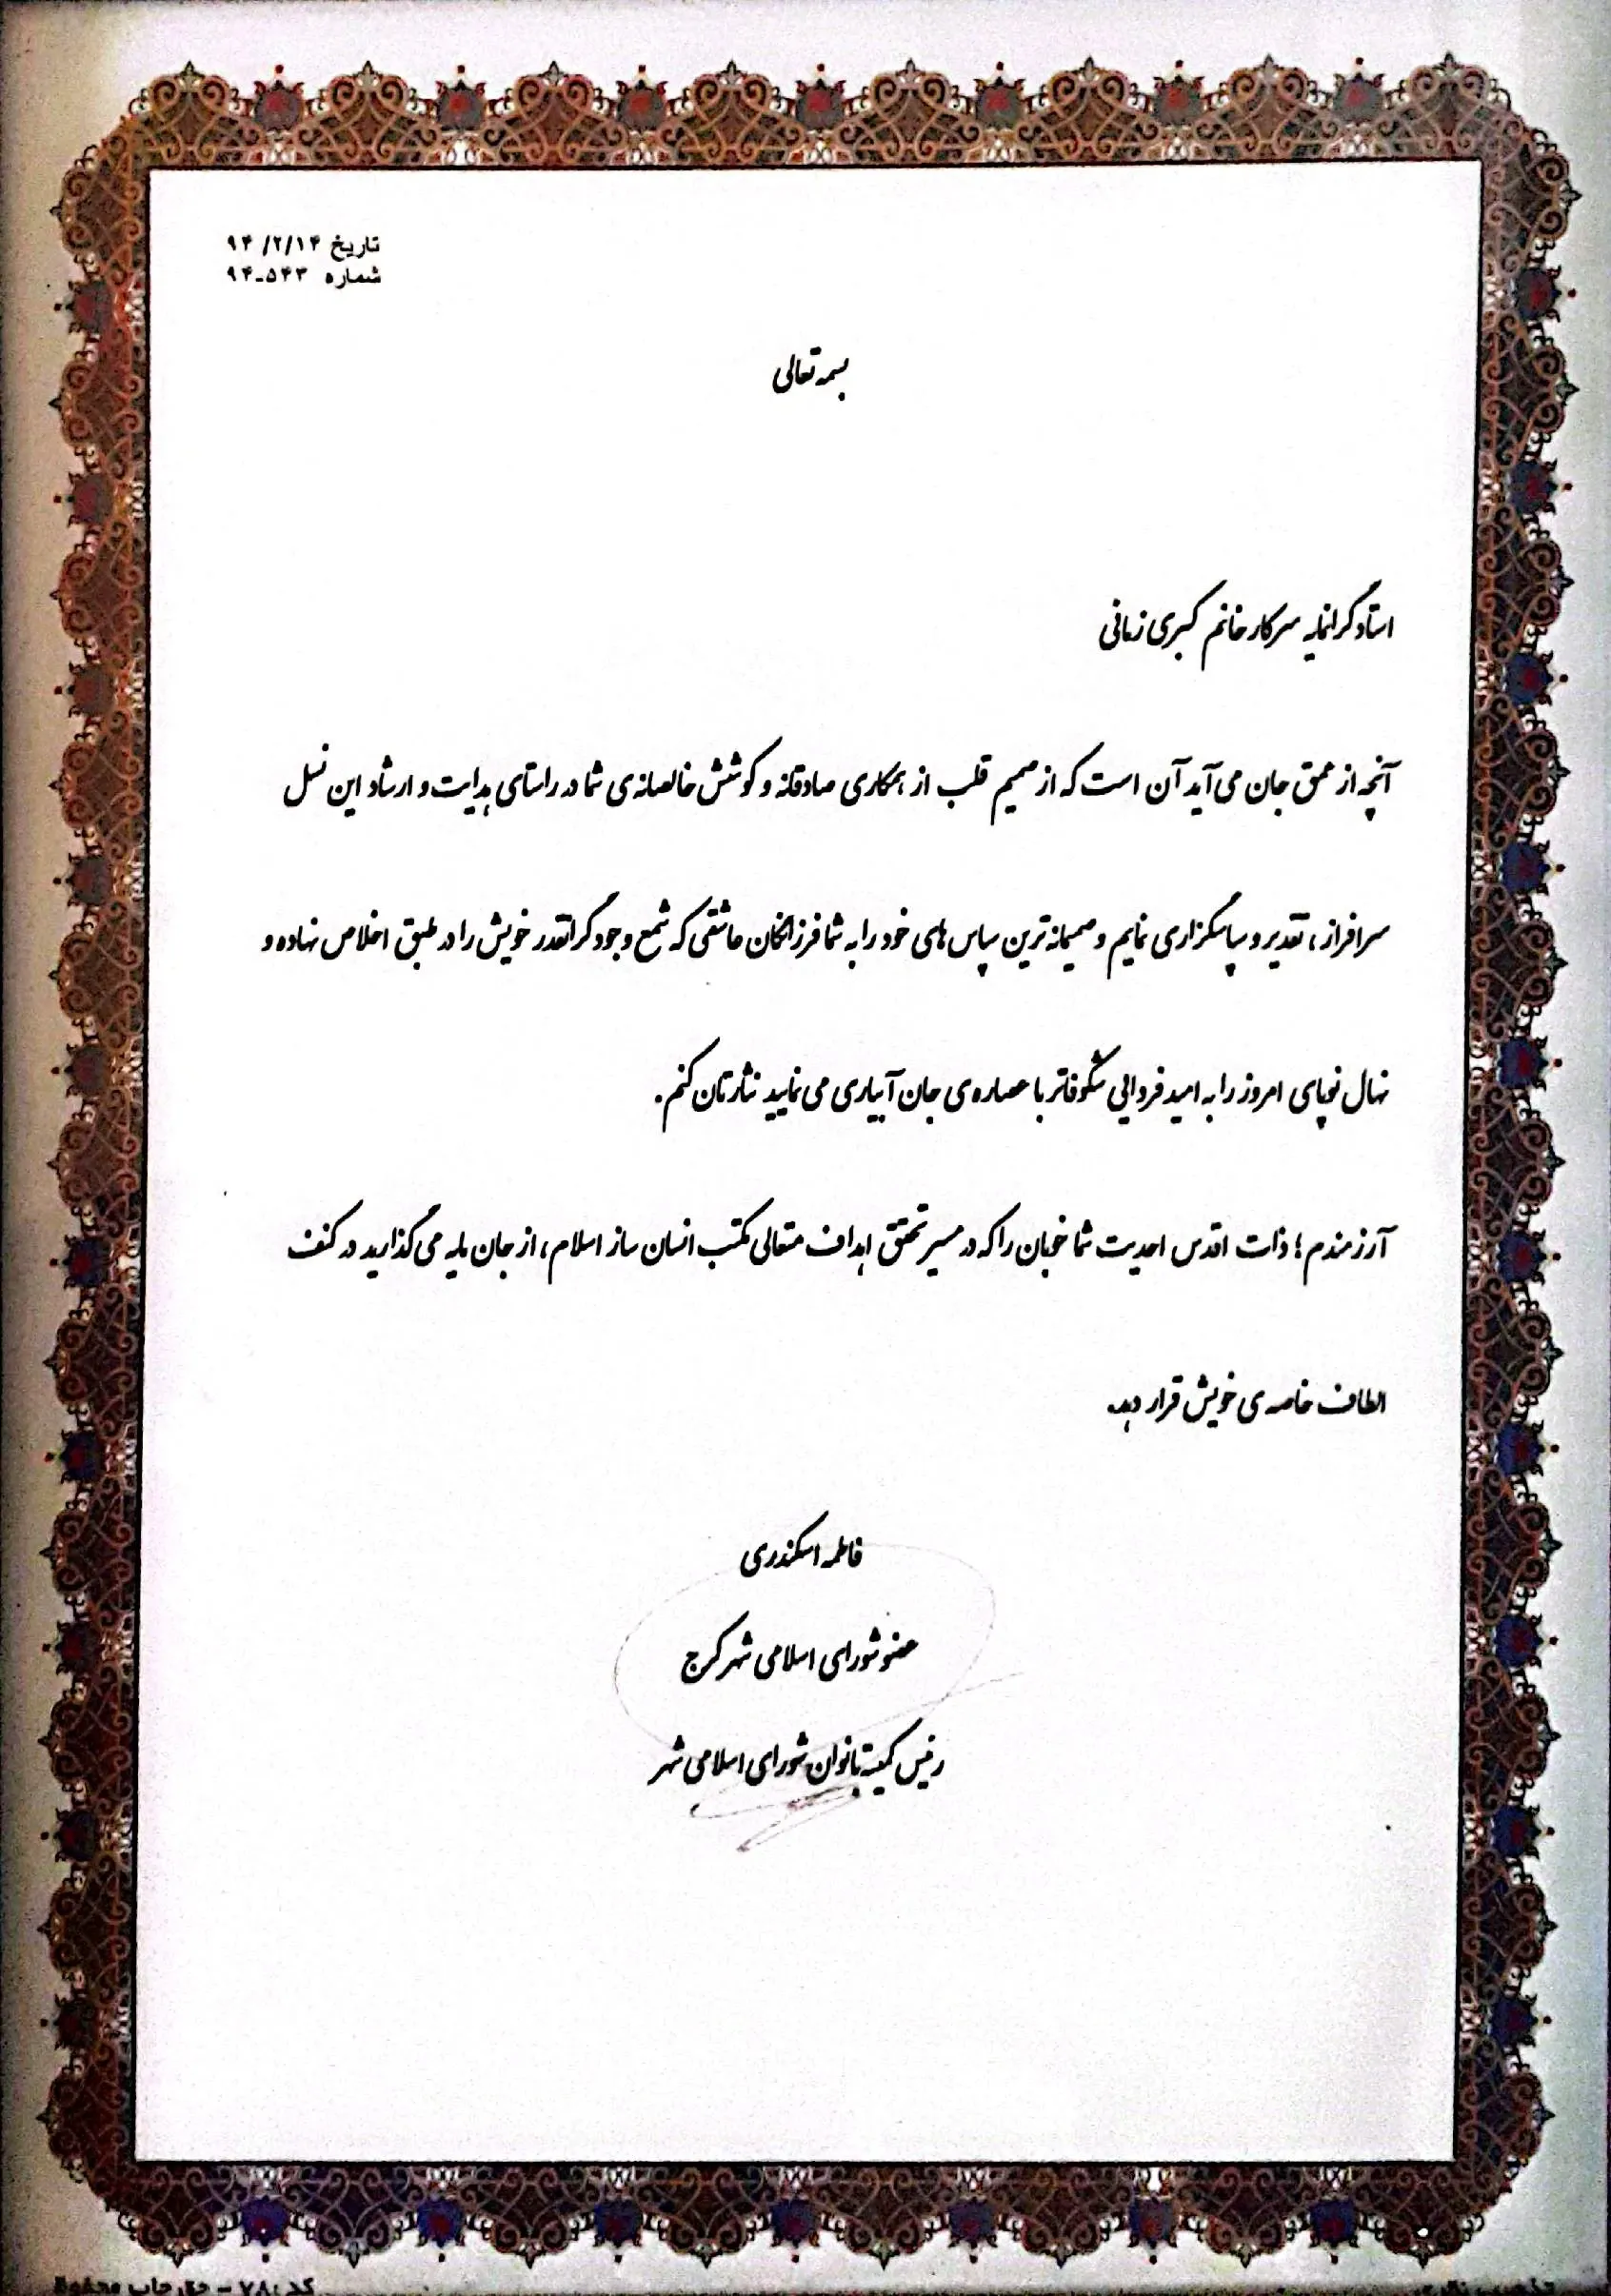 تاریخ ۹۴/۲/۱۴
شماره ۵۴۳-۹۴
بسمه تعالی
استاد گرانمایه سرکار خانم کبری زمانی
آنچه از عمق جان می آید آن است که از صمیم قلب از همکاری صادقانه و کوشش خالصانه ی شما در راستای هدایت و ارشاد این نسل
سرافراز، تقدیر و سپاسگزاری نمایم و صمیمانه ترین سپاس های خود را به شما فرزانگان عاشقی که شمع وجود گرانقدر خویش را در طبق اخلاص نهاده و
نهال نوپای امروز را به امید فردایی شکوفاتر با عصاره ی جان آبیاری می نمایید نثارتان کنم.
آرزمندم؛ ذات اقدس احدیت شما خوبان را که در مسیر تحقق اهداف متعالی مکتب انسان ساز اسلام، از جان مایه می گذارید در کنف
الطاف خاصه ی خویش قرار دهد.
فاطمه اسکندری
عضو شورای اسلامی شهر کرج
رئیس کمیته بانوان شورای اسلامی شهر
کد ۷۸۰ - حق چاپ محفوظ